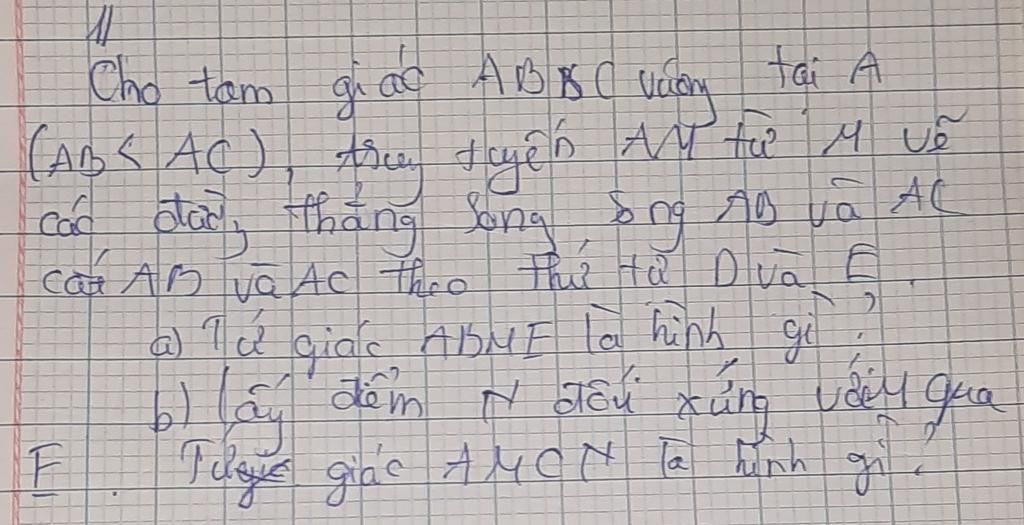 Cho tam giác ABC vuông tại A
(AB < AC), trung tuyến AM từ M vẽ
các đường thẳng song song AB và AC
cắt AB và AC theo thứ tự D và E.
a) Tứ giác ADME là hình gì?
b) lấy điểm N đối xứng với M qua
E. Tứ giác AMCN là hình gì?